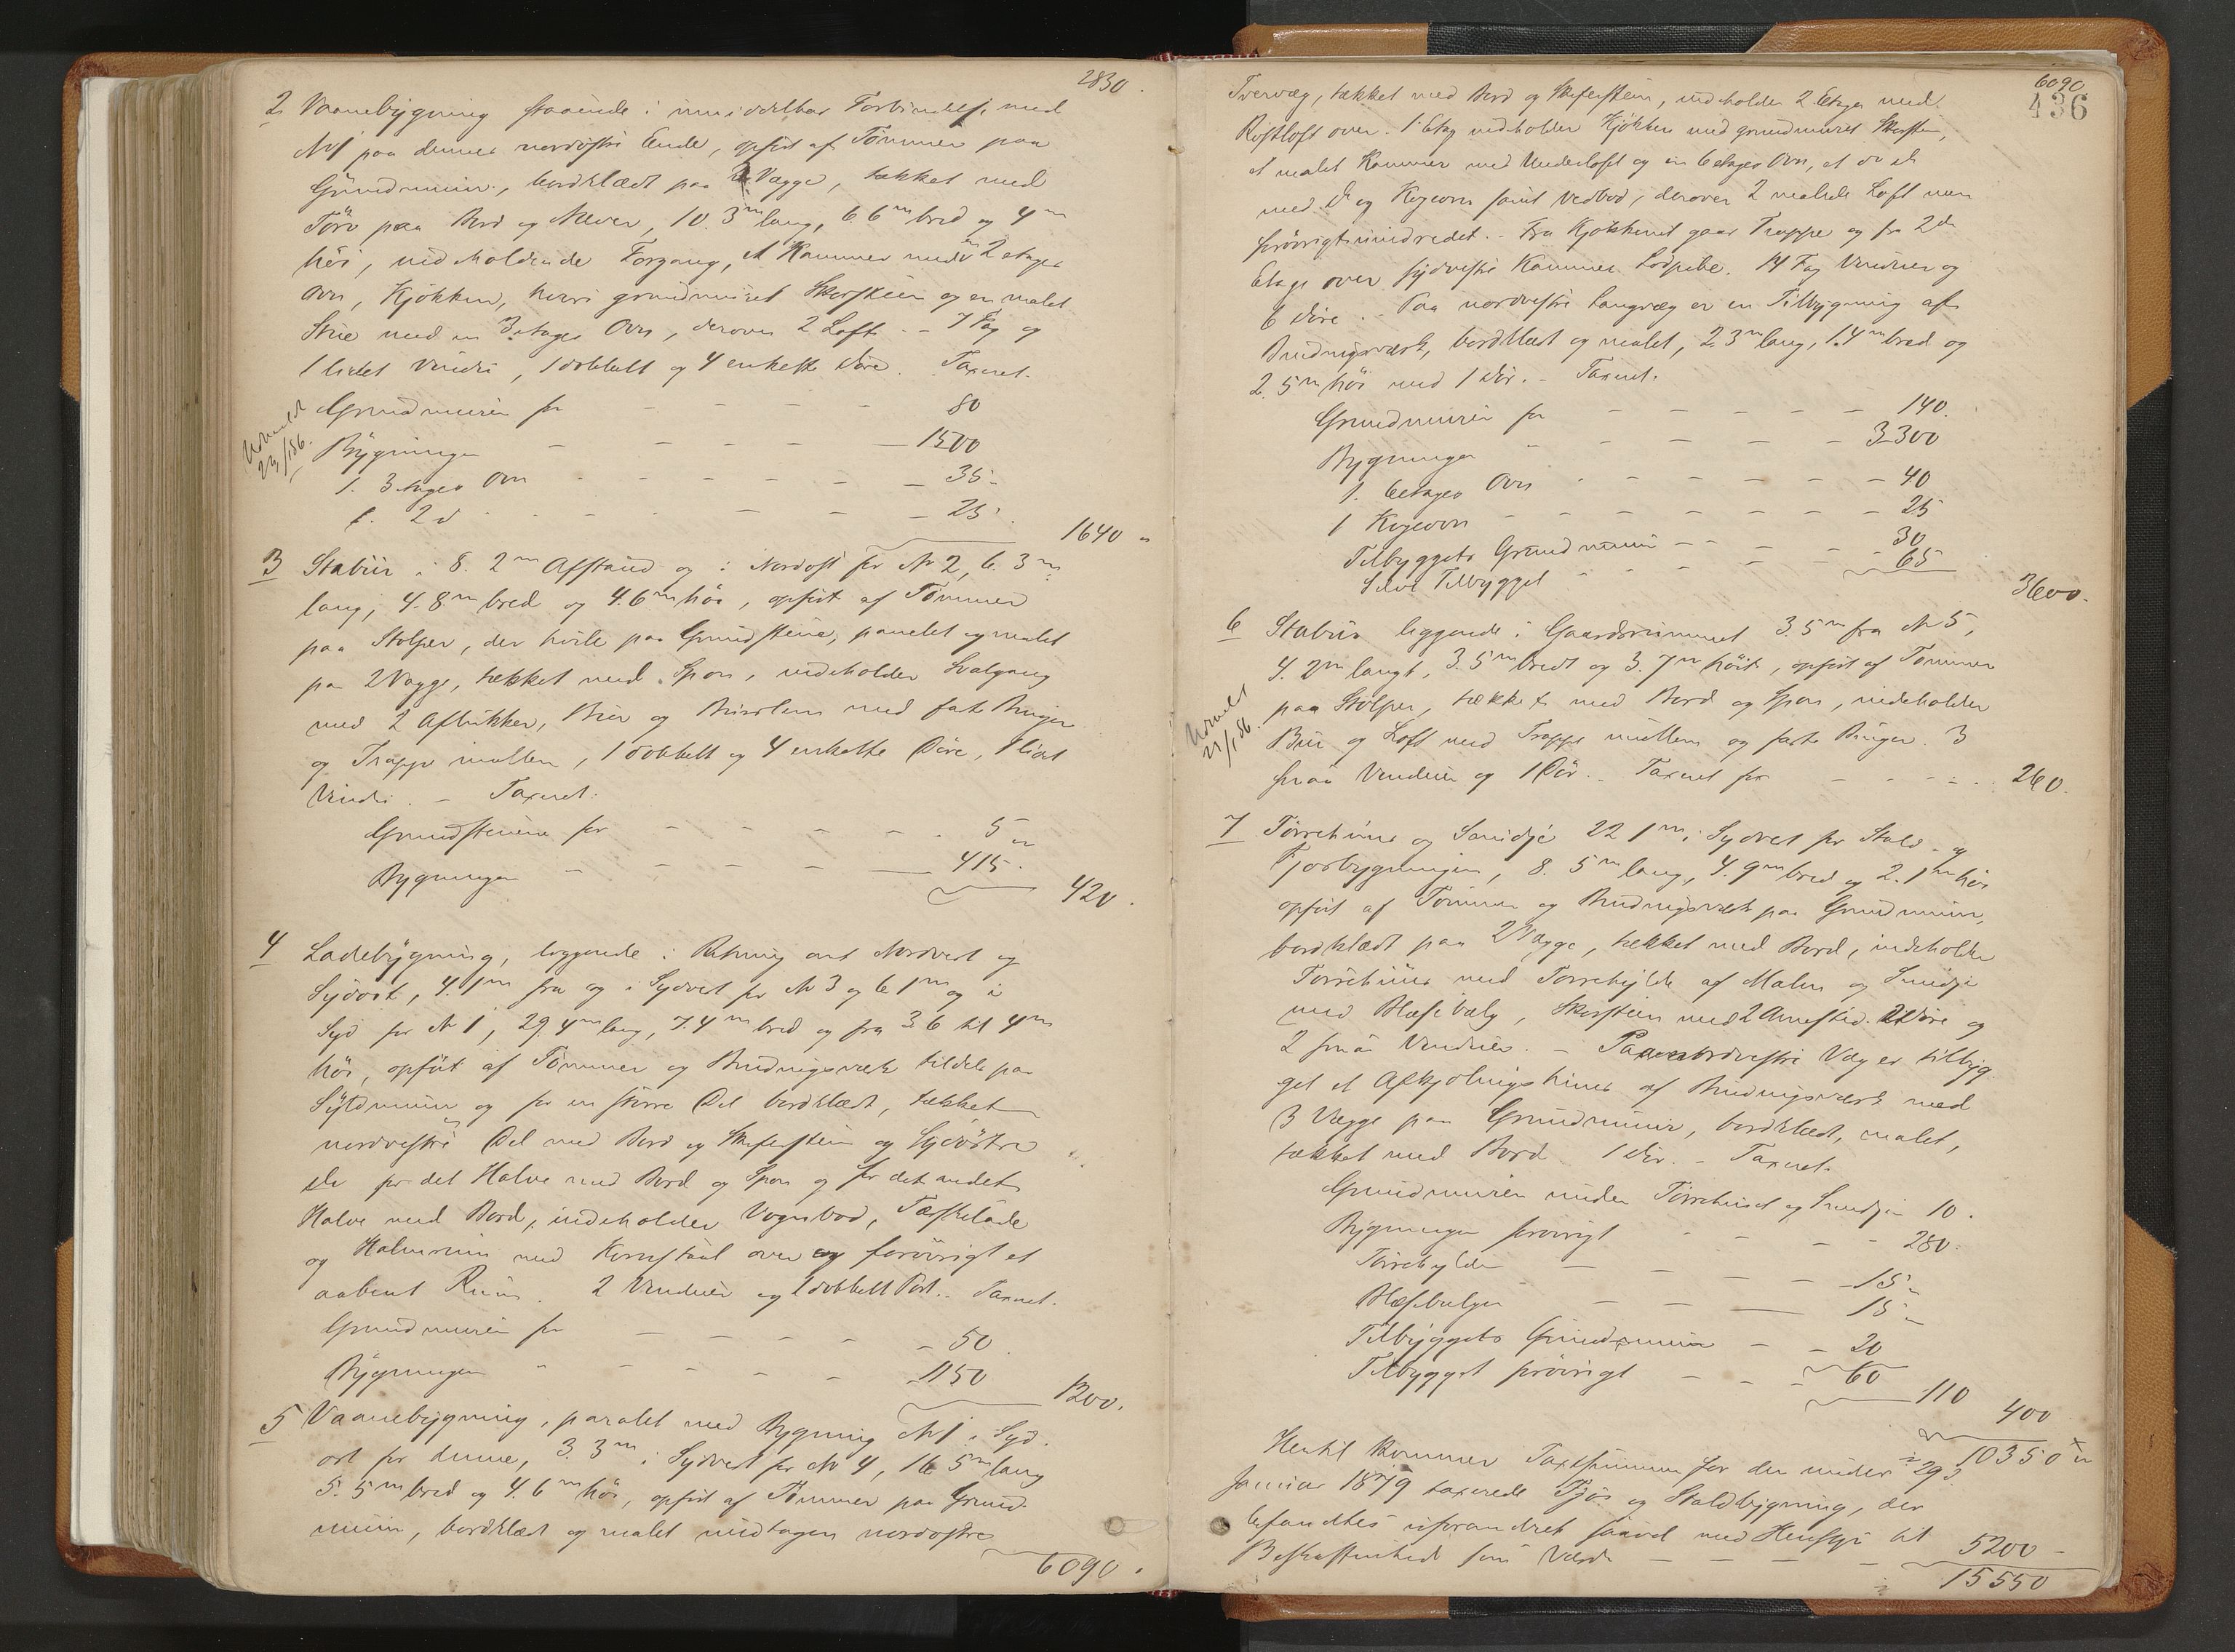 2830.
2 Vaanebygning staaende i umiddelbar Forbindelse med
N 1 paa dennes nordöstre Ende, opfört af Tömmer paa
Grundmuur, bordklædt paa 2 Vægge, tækket med
Törv paa Bord og Næver, 10.3m lang, 6.6m bred og 4m
höi, indeholdende Forgang, et Kammer med en 2 etages
Ovn, Kjökken, hvori grundmuret Skorsteen og en malet
Stue med en 3 etages Ovn, derover 2 Loft. - 7 Fag og
1 lidet Vindu, 1 dobbelt og 4 enkelte Döre. Taxeret.
Grundmuren for - - - - 80
Bygningen - - - - 1500
1. 3 etages Ovn - - - - 35 -
1. 2 d - - - - 25.
1640 "
Udmeldt
23/1 86.
3 Stabur i 8.2m Afstand og i Nordost for N 2, 6.3m
lang, 4.8m bred og 4.6m höi, opfört af Tömmer
paa Stolper, der hvile paa Grundstene, panelet og malet
paa 2 Vægge, tækket med Spon, indeholder Svalgang
med 2 Aflukker, Buer og Buirslem med faste Binger
og Trappe imellem, 1 dobbelt og 4 enkelte Döre, 1 lidet
Vindu. - Taxeret.
Grundstenene for - - - - 5 "
Bygningen - - - - 415.
420.
4 Ladebygning, liggende i Retning mod Nordvest og
Sydost, 4.1m fra og i Sydvest for N 3 og 6.1m og i
Syd for N 1, 29.4m lang, 7.4m bred og fra 3.6 til 4m
höi, opfört af Tömmer og Bindingsværk tildels paa
Syldmuur og for en större Del bordklædt, tækket
nordvestre Del med Bord og Skifersteen og Sydöstre
do for det Halve med Bord og Spon og for det andet
Halve med Bord, indeholder Vognbod, Tærskelade
og Halmrum med Kornstaal over og forövrigt et
aabent Rum. 2 Vinduer og 2 dobbelt Port. - Taxeret.
Grundmuren for - - - - 50.
Bygningen - - - - 1150
1200.
5 Vaanebygning, paralel med Bygning N 1 i Syd-
ost for denne, 3.3m i Sydvest for N 4, 16.5m lang
5.5m bred og 4.6m höi, opfört af Tömmer paa Grund-
muur, bordklædt og malet undtagen nordöstre
6090.
6090
436
Tvervæg, tækket med Bord og Skifersteen, indeholder 2 Etager med
Röstloft over. 1 Etag indeholder Kjökken med grundmuret Skorsten,
et malet Kammer med Underloft og en 6 etages Ovn, et do do
med do og Kogeovn samt Vedbod, derover 2 malede Loft men
forövrigt uindredet. - Fra Kjökkenet gaar Trappe og fra 2den
Etage over sydvestre Kammer Lodpibe. 14 Fag Vinduer og
6 Döre. - Paa nordvestre Langvæg er en Tilbygning af
Bindingsværk, bordklædt og malet, 2.3m lang, 1.4m bred og
2.5m höi med 1 Dör. - Taxeret.
Grundmuren for - - - - 140.
Bygningen - - - - 3300
1. 6 etages Ovn - - - - 40
1 Kogeovn - - - - 25
Tilbyggets Grundmuur - - - - 30
Selve Tilbygget - - - - 65
3600.
6 Stabur liggende i Gaardsrummet 3.5m fra N 5,
4.2m langt, 3.5m bredt og 3.7m höit, opfört af Tömmer
paa Stolper, tækket med Bord og Spon, indeholder
Bur og Loft med Trappe imellem og faste Binger. 3
smaa Vinduer og 1 Dör. - Taxeret for - - - 260.
Udmeldt
21/1 86.
7 Törrehuus og Smidje 22.1m i Sydvest for Stald- og
Fjosbygningen, 8.5m lang, 4.9m bred og 2.1m höi
opfört af Tömmer og Bindingsværk paa Grundmuur,
bordklædt paa 2 Vægge, tækket med Bord, indeholder
Törrehuus med Törrehylde af Malm og Smidje
med Blæsebælg, Skorsteen med 2 Arnested. 2 Döre og
2 smaa Vinduer. - Paa nordvestre Væg er tilbyg-
get et Afkjölingshuus af Bindingsværk med
3 Vægge paa Grundmuur, bordklædt, malet,
tækket med Bord. 1 Dör. - Taxeret.
Grundmuren under Törrehuset og Smidjen 10.
Bygningen forövrigt - - - 280.
Törrehylden - - - - 15 "
Blæsebælgen - - - 15 "
Tilbyggets Grundmuur - - 20
Tilbygget forövrigt - - - 60
110 400
10350 "
Hertil kommer Taxtsummen for den under 29d
Januar 1879 taxerede Fjös og Staldbygning, der
befandtes uforandret saavel med Hensyn til
Beskaffenhed som Værdi - - - 5200 -
15550